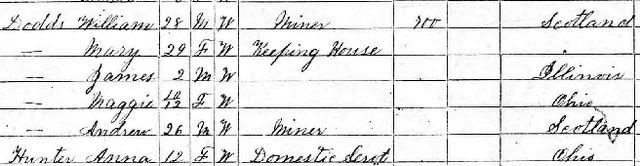 Dodds William 28 M W Miner 700 Scotland
— Mary 29 F W Keeping House "
— James 2 M W Illinois
— Maggie 10/12 F W Ohio
— Andrew 26 M W Miner Scotland
Hunter Anna 12 F W Domestic Servt Ohio